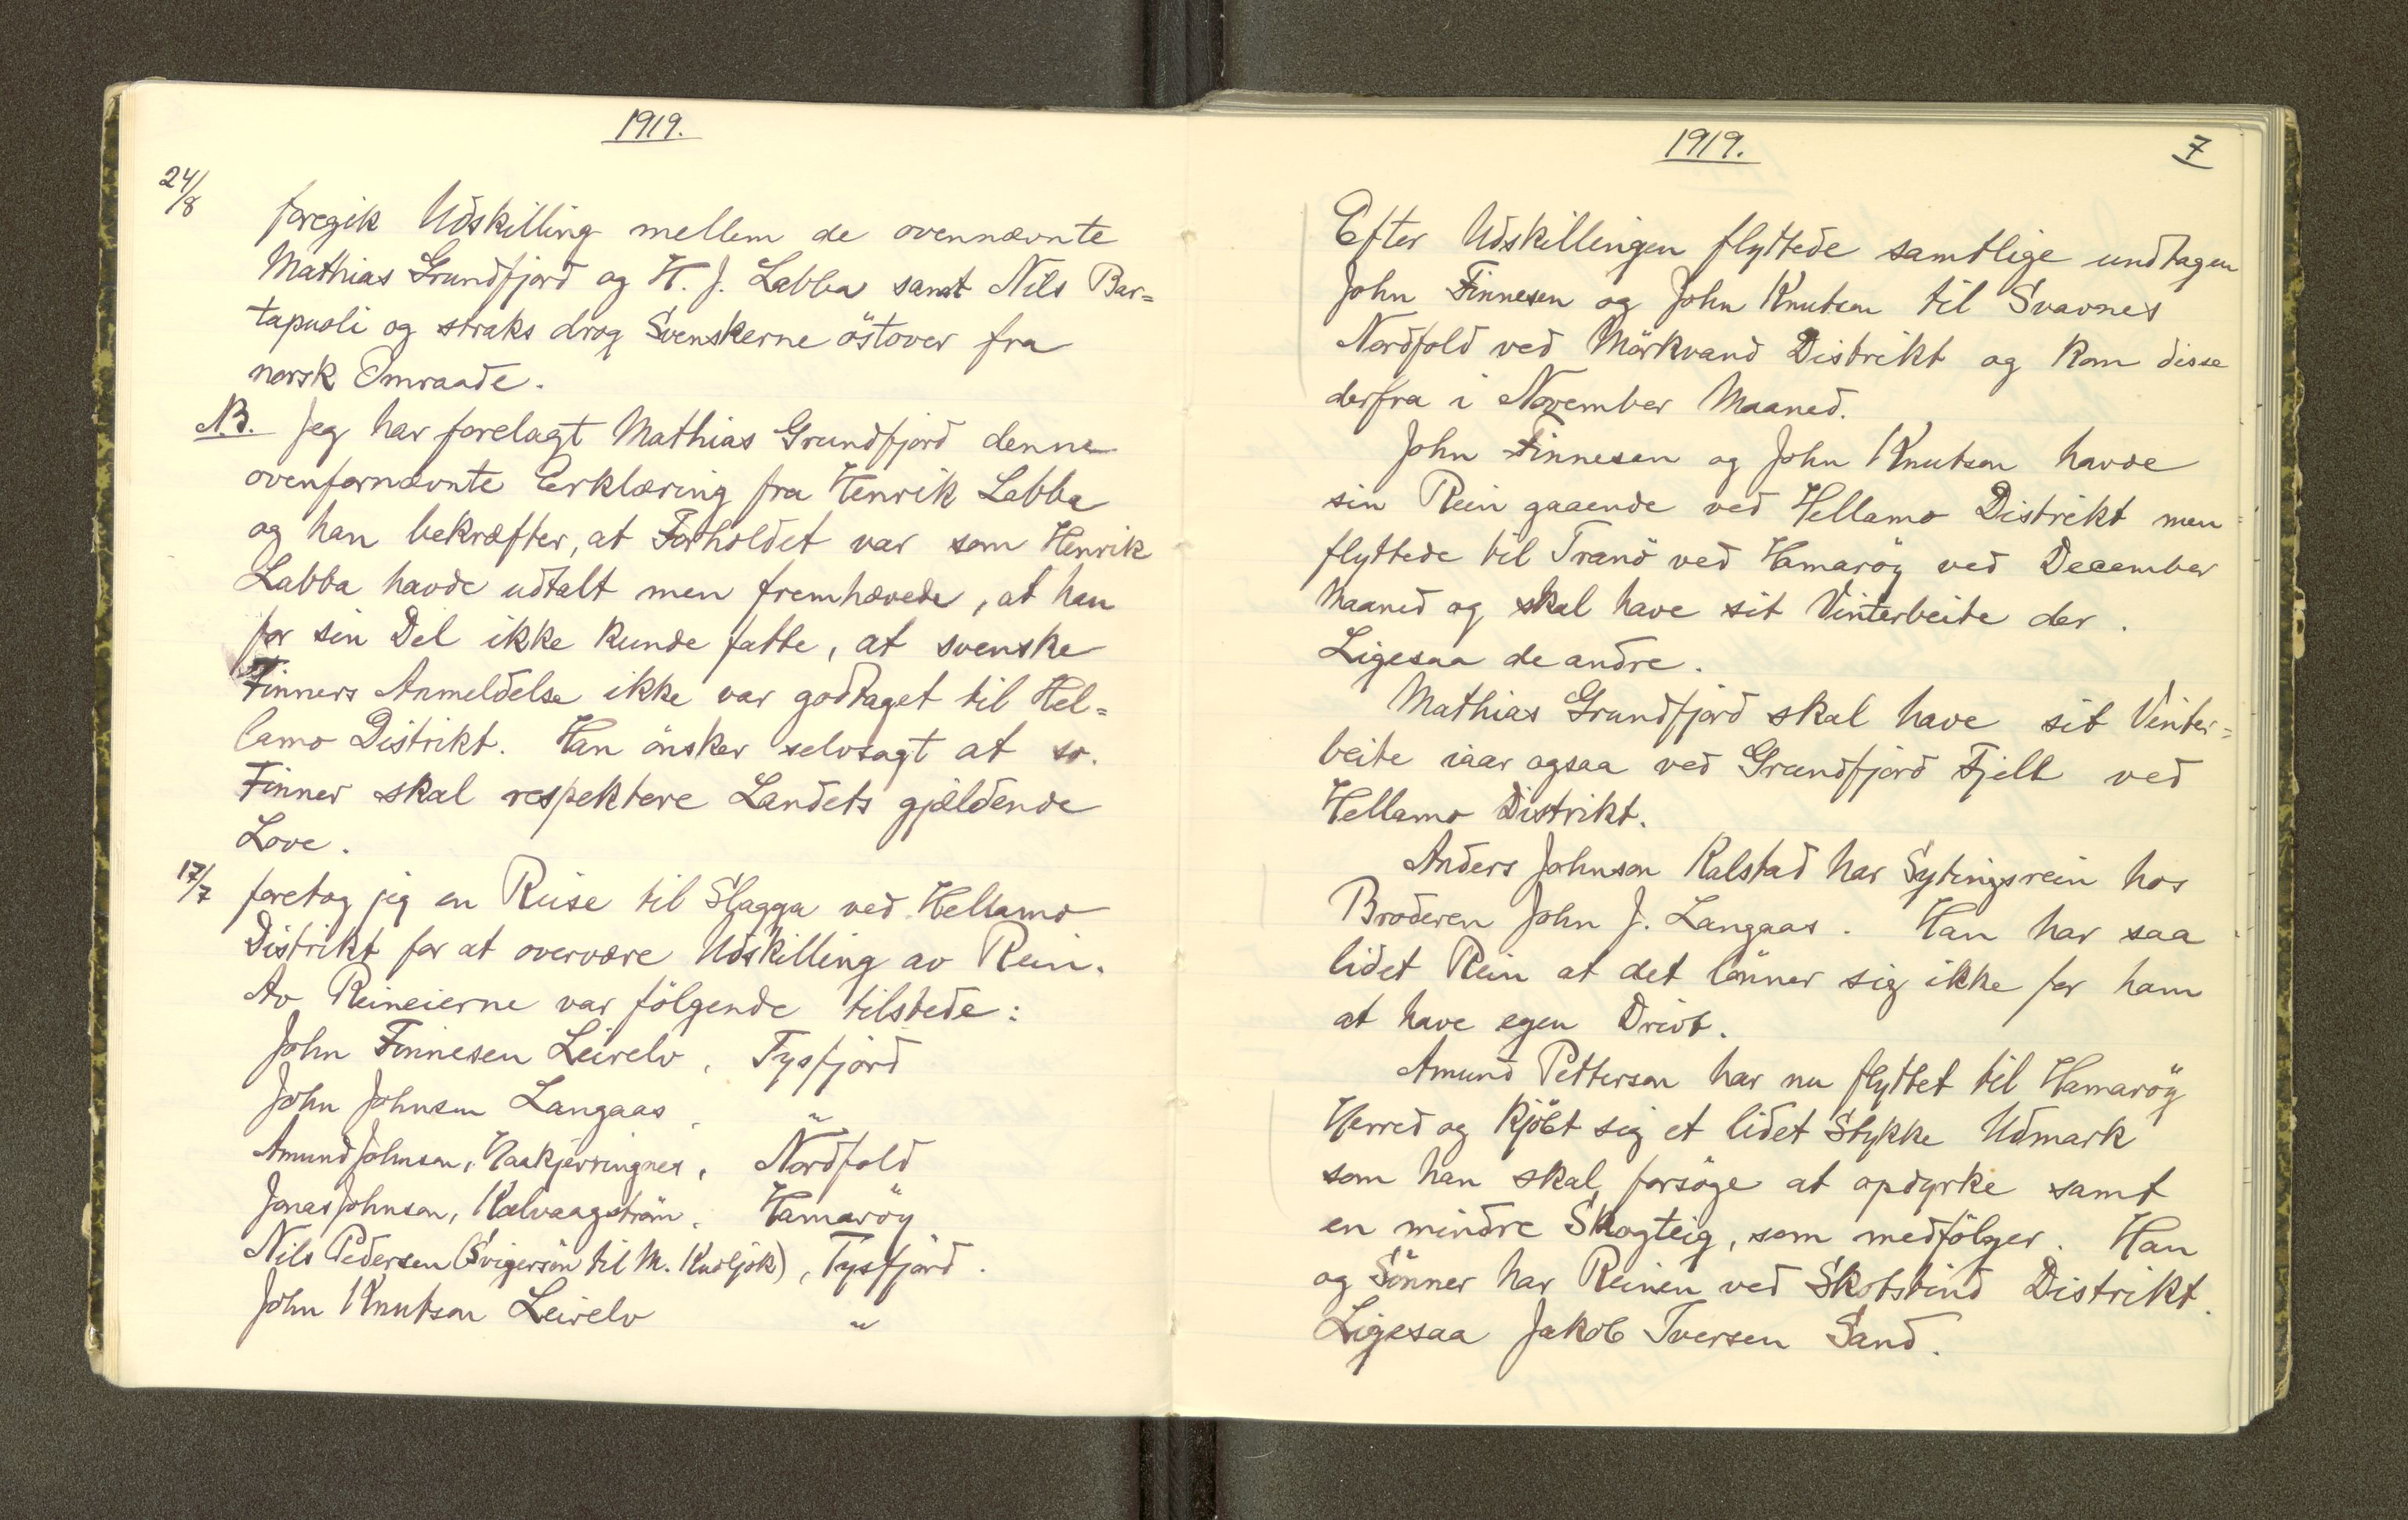 1919.
24/8
foregik Udskilling mellem de ovennævnte
Mathias Grundfjord og H. J. Labba samt Nils Bar=
tapuoli og straks drog Svenskerne östover fra
norsk Omraade.
N.B. Jeg har forelagt Mathias Grundfjord denne
ovenfornævnte Erklæring fra Henrik Labba
og han bekræfter, at Forholdet var som Henrik
Labba havde udtalt men fremhævede, at han
for sin Del ikke kunde fatte, at svenske
Finners Anmeldelse ikke var godtaget til Hel=
lamo Distrikt. Han önsker selvsagt at sv.
Finner skal respektere Landets gjældende
Love.
17/7 foretog jeg en Reise til Slagga ved Hellamo
Distrikt for at overvære Udskilling av Rein.
Av Reineierne var fölgende tilstede:
John Finnesen Leirelv, Tysfjord
John Johnsen Langaas, "
Amund Johnsen, Haakjerringnes, Nordfold
Jonas Johnsen, Kalvaagström, Hamaröy
Nils Pedersen (Svigersön til M. Kuoljok), Tysfjord.
John Knutsen Leirelv "
1919.
7
Efter Udskillingen flyttede samtlige undtagen
John Finnesen og John Knutsen til Svavnes
Nordfold ved Mörkvand Distrikt og kom disse
derfra i November Maaned.
John Finnesen og John Knutsen havde
sin Rein gaaende ved Hellamo Distrikt men
flyttede til Tranö ved Hamaröy ved December
Maaned og skal have sit Vinterbeite der.
Ligesaa de andre.
Mathias Grundfjord skal have sit Vinter=
beite iaar ogsaa ved Grundfjord Fjell ved
Hellamo Distrikt.
Anders Johnsen Kalstad har Sytingsrein hos
Broderen John J. Langaas. Han har saa
lidet Rein at det lönner sig ikke for ham
at have egen Drivt.
Amund Pettersen har nu flyttet til Hamaröy
Herred og kjöbt sig et lidet Stykke Udmark
som han skal forsöge at opdyrke samt
en mindre Skogteig, som medfölger. Han
og Sönner har Reinen ved Skotstind Distrikt.
Ligesaa Jakob Iversen Sand.